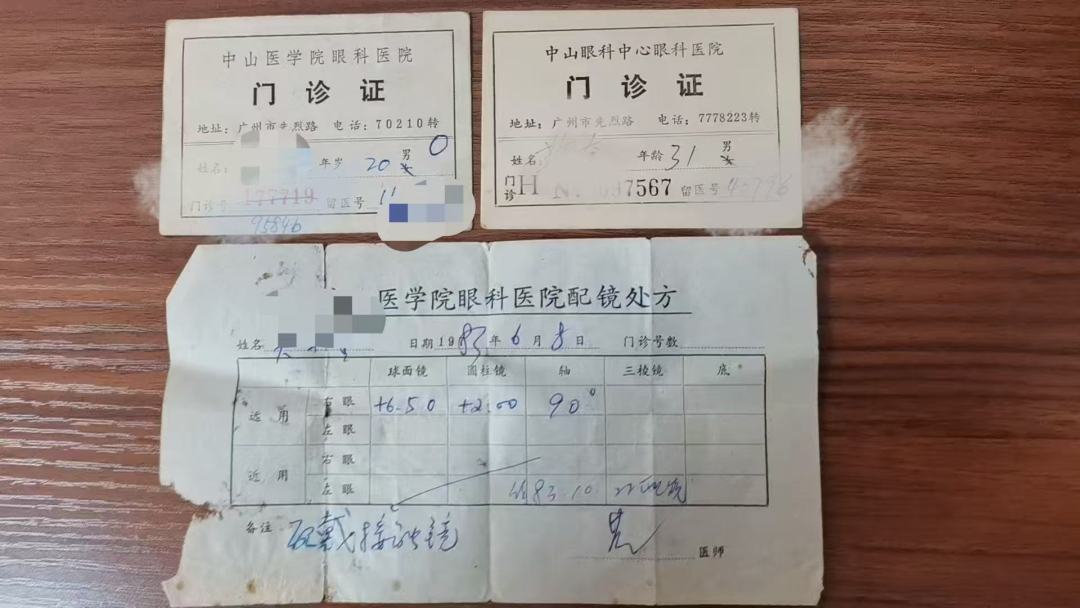 中山医学院眼科医院
门诊证
地址：广州市先烈路 电话：70210转
姓名： 年岁 20 男 0
门诊号 177719 留医号
95846
中山眼科中心眼科医院
门诊证
地址：广州市先烈路 电话：7778223转
姓名： 年龄 31 男
门诊 H No 7567 留医号
医学院眼科医院配镜处方
姓名 日期 1983年6月8日 门诊号数
球面镜 圆柱镜 轴 三棱镜 底
远用 右眼 +6.50 +2.00 90°
左眼
近用 右眼
左眼
备注： 配戴接触镜
医师